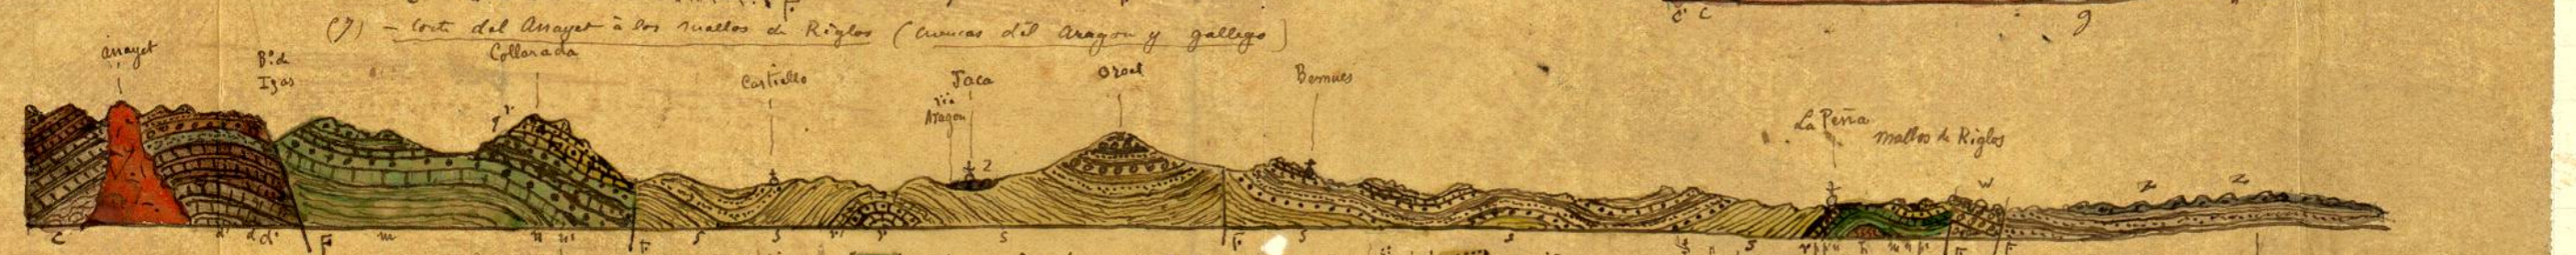 (7) - Corte del Anayet à los mallos de Riglos (cuencas del Aragon y gallego)
anayet
Bº. de
Igas
Collarada
Castiello
Jaca
rio
Aragon
Oroel
Bernues
La Peña
mallos de Riglos
2
W
Z Z
C
F
m
n
F
S
S
S
F
S
S
S
S
F
F